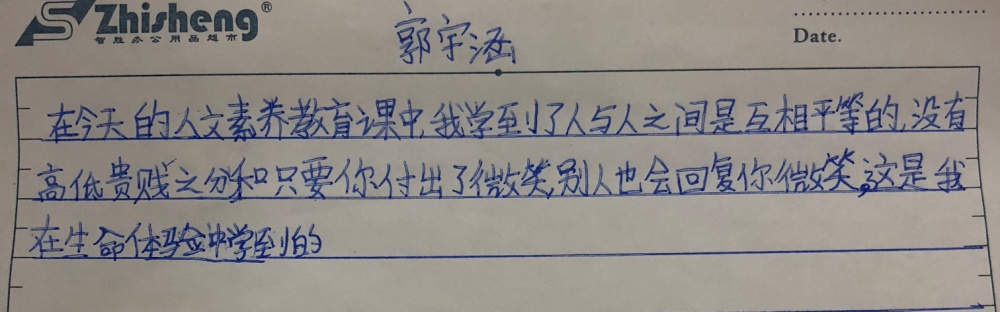 Zhisheng®
智胜办公用品超市
郭宇涵
Date.
在今天的人文素养教育课中,我学到了人与人之间是互相平等的,没有
高低贵贱之分和只要你付出了微笑,别人也会回复你微笑,这是我
在生命体验中学到的